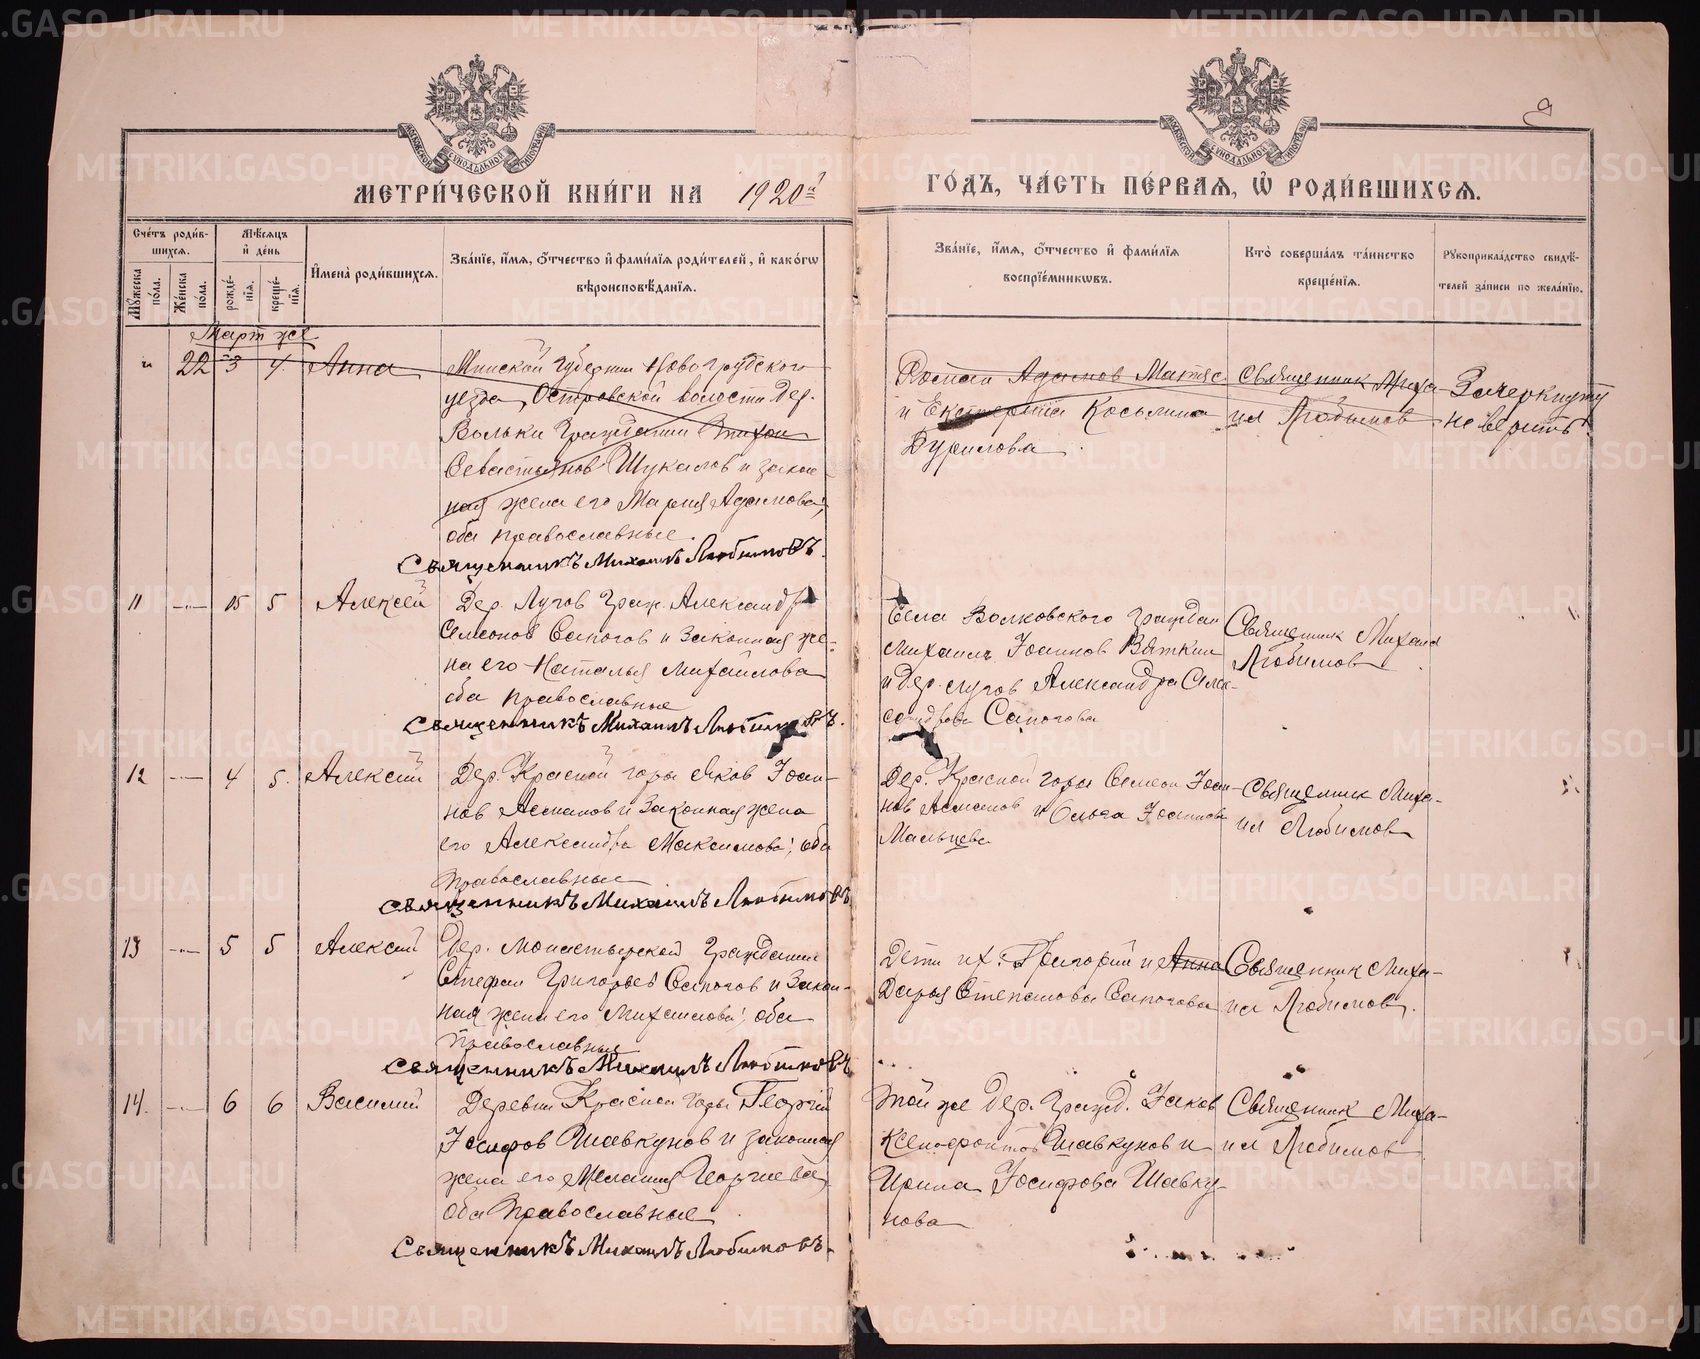 9
МЕТРИ́ЧЕСКОЙ КНИ́ГИ НА 1920й
ГО́ДЪ, ЧА́СТЬ ПЕ́РВАЯ, Ѽ РОДИ́ВШИХСЯ.
Сче́тъ роди́вшихся.
Мꙋ́жеска по́ла.
Же́нска по́ла.
Мѣ́сяцъ и҆ де́нь
рожде́нїя.
креще́нїя.
И҆мена̀ роди́вшихся.
Зва́нїе, и҆́мя, ѻ҆́тчество и҆ фами́лїя роди́телей, и҆ како́гѡ
вѣроисповѣ́данїя.
Зва́нїе, и҆́мя, ѻ҆́тчество и҆ фами́лїя
воспрїе́мникѡвъ.
Кто̀ соверша́лъ та́инство
креще́нїя.
Рꙋкоприкла́дство свидѣ́-
телей за́писи по жела́нїю.
Март же
22 3 4 Анна
Минской губернии Новогрудского
уезда, Островской волости Дер.
Вольки Гражданин Тихон
Севастьянов Шукалов и закон-
ная жена его Мария Адамова;
оба православные.
Священникъ Михаилъ Любимовъ.
Роман Адамов Матяс
и Екатерина Косьмина
Дурилова
Священник Миха-
ил Любимов
Зачеркнуту
не верить.
11 15 5 Алексей
Дер. Лугов Граж. Александр
Симеонов Сапогов и Законная же-
на его Наталья Михайлова
оба православные
Священникъ Михаилъ Любимовъ.
Села Волковского Граждан
Михаил Иоаннов Вяткин
и Дер. Лугов Александра Алек-
сандрова Сапогова
Священник Михаил
Любимов
12 4 5 Алексий
Дер. Красной горы Иаков Иоан-
нов Асманов и Законная жена
его Александра Максимова; оба
православные
Священникъ Михаилъ Любимовъ
Дер. Красной горы Симеон Иоан-
нов Асманов и Ольга Иоаннова
Мальцева
Священник Миха-
ил Любимов
13 5 5 Алексий
Дер. Монастырской Гражданин
Стефан Григорьев Сапогов и Закон-
ная жена его Михаилова; оба
православные
Священникъ Михаилъ Любимовъ
Дети их: Григорий и Анна
Дарья Степановы Сапогова
Священник Миха-
ил Любимов.
14. 6 6 Василий
Деревни Красной Горы Георгий
Иосифов Шавкунов и законная
жена его Мелания Георгиева,
оба Православные
Священникъ Михаилъ Любимовъ.
Той же Дер. Гражд. Иаков
Ксенофонтов Шавкунов и
Ирина Иосифова Шавку-
нова
Священник Миха-
ил Любимов